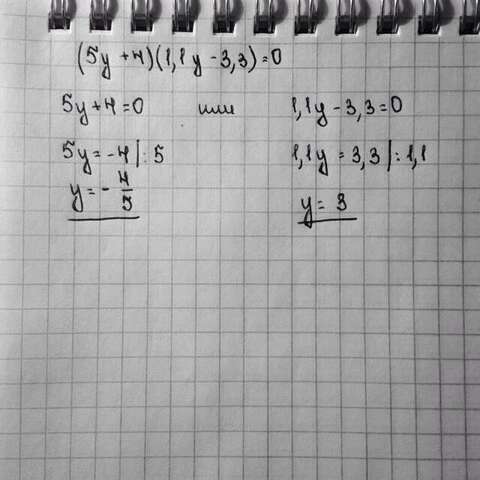 (5y+4)(1,1y-3,3)=0
5y+4=0 или 1,1y-3,3=0
5y=-4|:5 1,1y=3,3|:1,1
y=-4/5 y=3